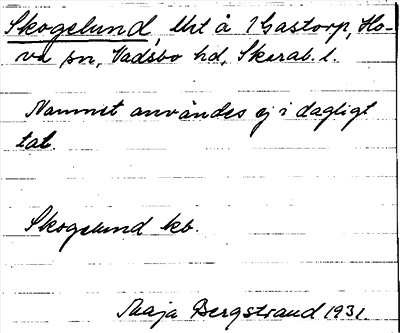 Skogelund, Uht å 1 Gastorp, Ho-
va sn, Vadsbo hd, Skarab. l.
Namnet användes ej i dagligt
tal.
Skogelund kb.
Maja Bergstrand 1931.